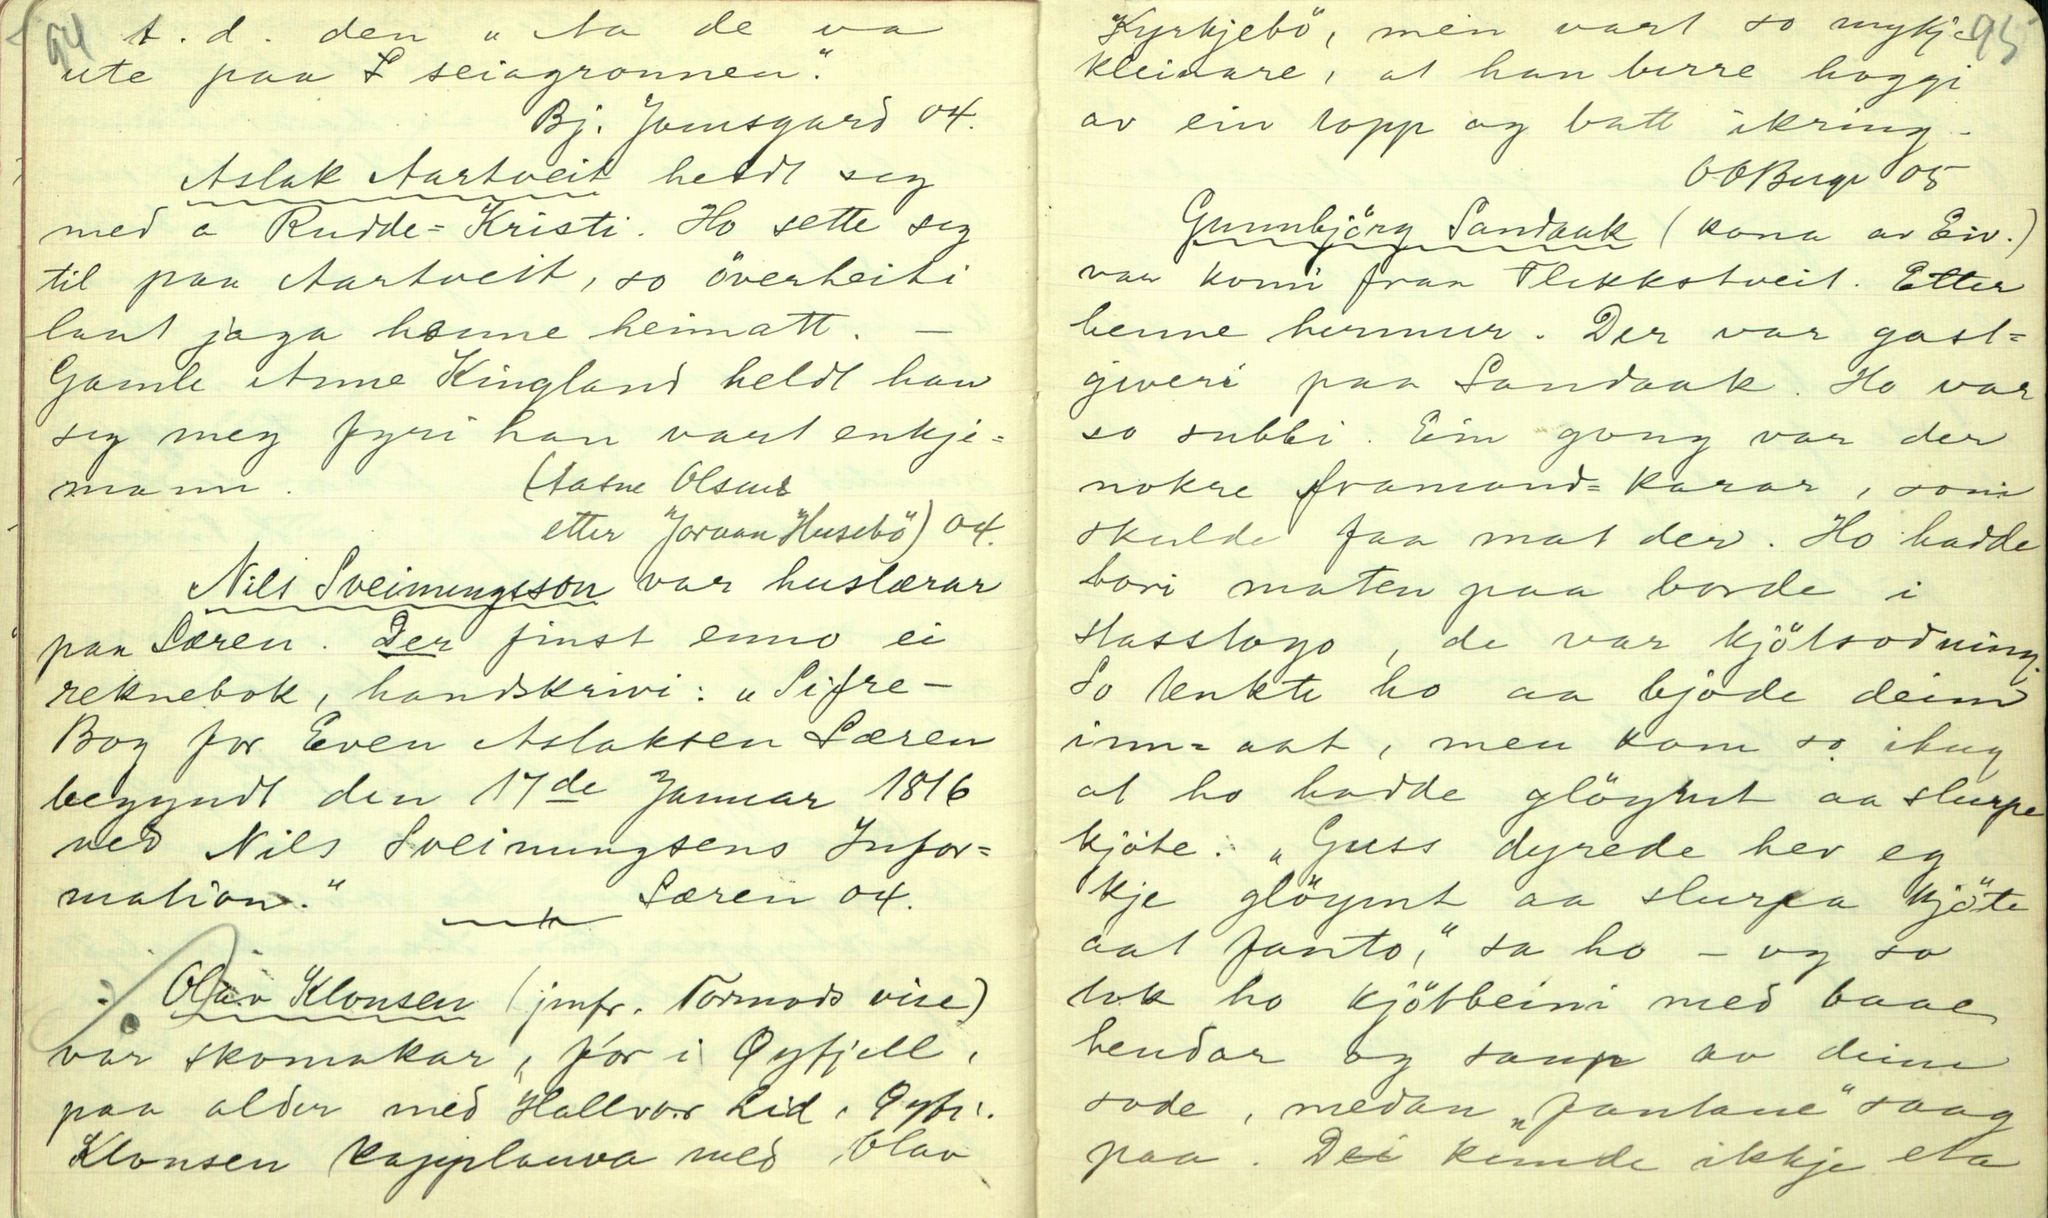 94
t. d. den „Aa de va
ute paa L seiagronnen".
Bj. Jamsgard 04.
Aslak Aartveit heldt seg
med a Rudde-Kristi. Ho sette seg
til paa Aartveit, so överheiti
laut jaga henne heimatt. —
Gamle Anne Kingland heldt han
seg meg fyri han vart enkje-
mann. (Aasne Olsnes
etter Joraan Husebö) 04.
Nils Sveinungsson var huslærar
paa Særen. Der finst enno ei
reknebok, handskrivi: „Sifre-
Bog for Even Aslaksen Særen
begyndt den 17de Januar 1816
ved Nils Sveinungsens Infor-
mation." Særen 04.
Olav Klonsen (jmfr. Tormods vise)
var skomakar, for i Øyfjell,
paa alder med Hallvor Lid, Øyfj.
Klonsen kapplauva med Olav
95
Kyrkjebö, men vart so mykje
kleinare, at han berre hoggi
av ein topp og batt ikring.
O O Berge 05
Gunnbjörg Sandaak (kona av Eiv.)
var komi fraa Flekkstveit. Etter
henne hermur. Der var gast-
giveri paa Sandaak. Ho var
so subbi. Ein gong var der
nokre framand-karar, som
skulde faa mat der. Ho hadde
bori maten paa borde i
stasstogo, de var kjötsodning.
So tenkte ho aa bjode deim
inn-aat, men kom so ihug
at ho hadde glöymt aa slurpe
kjöte. „Guss dyrede hev eg
kje glöymt aa slurpa kjöte
aat fanto," sa ho – og so
tok ho kjötbeini med baae
hendar og saup av deim
sode, medan „fantane" saag
paa. Dei kunde ikkje eta